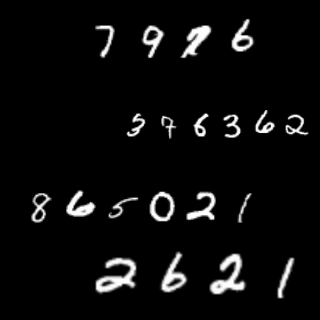 7926
376362
865021
2621